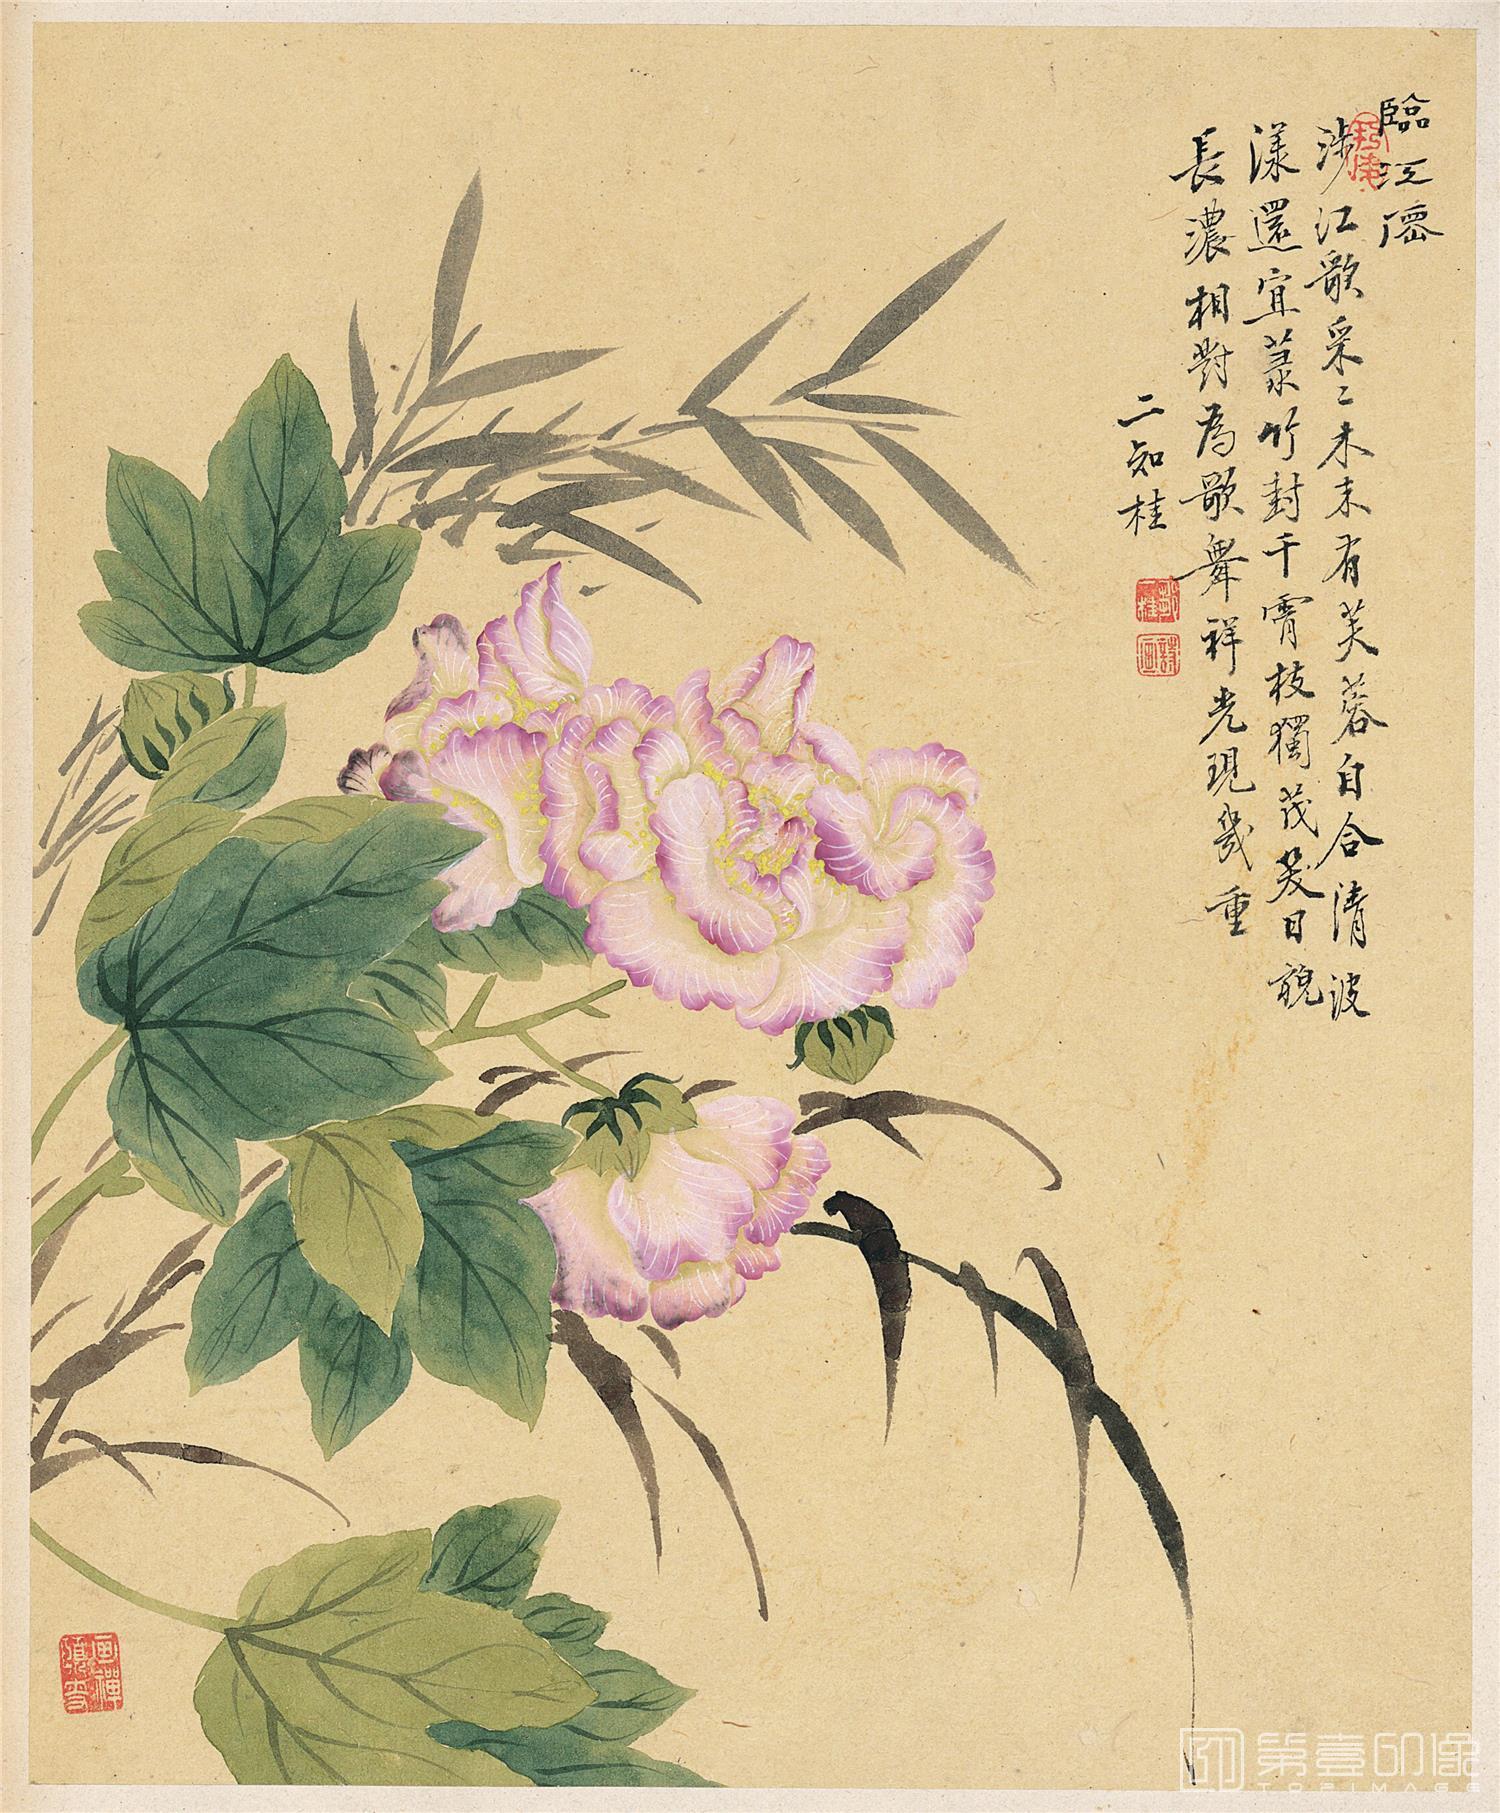 臨江
涉江歌采〻木末有芙蓉自合清波
漾還宜菉竹封干霄枝獨茂日貌
長濃相對為歌舞祥光現幾重
二知桂
第壹印像
TOPIMAGE